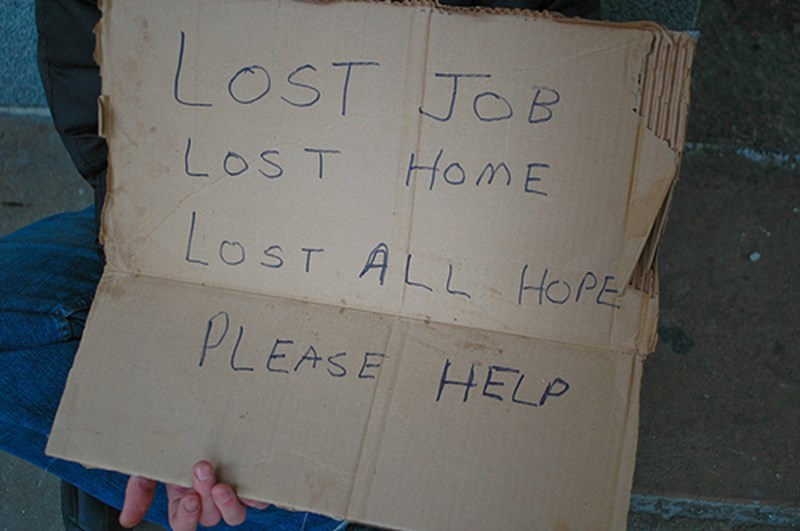 LOST JOB
LOST HOME
LOST ALL HOPE
PLEASE HELP